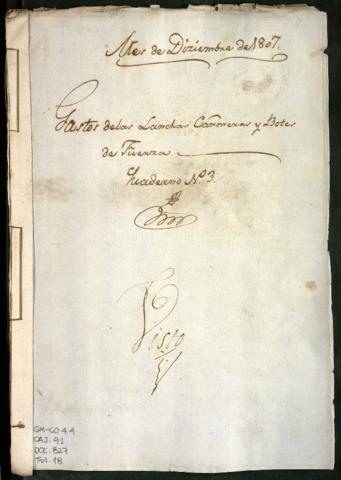 Mes de Diziembre de 1807.
Gastos de las Lanchas Cañoneras y Botes
de Fuerza
Quaderno N.º 3.
Visto
GM-CO 4.4
CAJ. 91
DOC. 827
Fol. 18